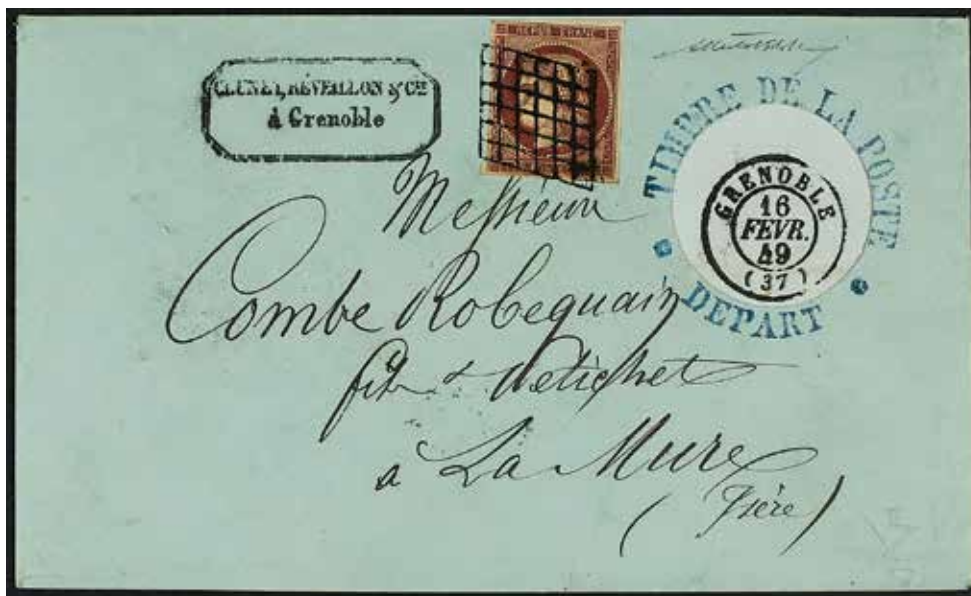 REPUB. FRANC.
CLUNET, RÉVEILLON & Cie
à Grenoble
TIMBRE DE LA POSTE
DEPART
GRENOBLE
16
FEVR.
49
(37)
Messieurs
Combe Robequain
fils &
à La Mure
(Isère)